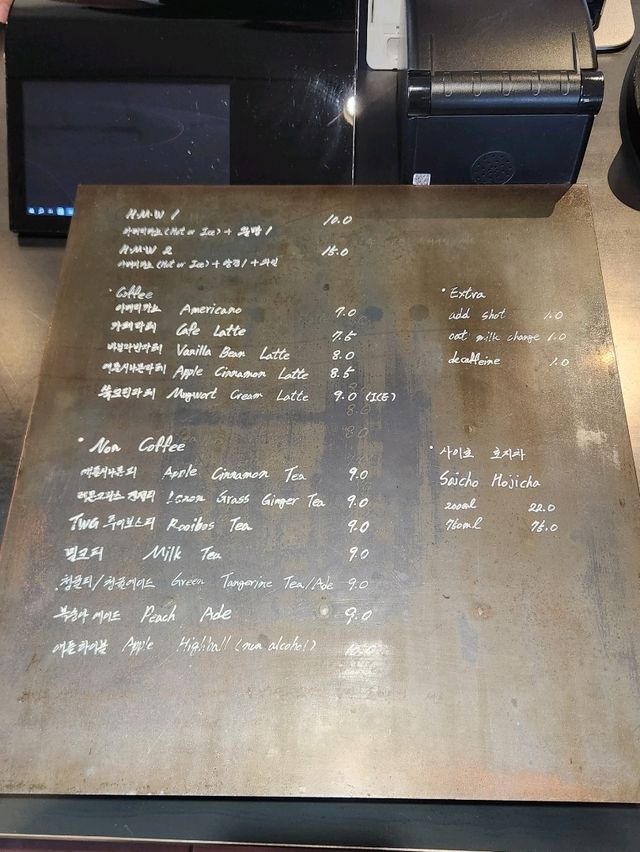 H.M.W 1 10.0
아메리카노 (Hot or Ice) + 1
H.M.W 2 15.0
아메리카노 (Hot or Ice) + +
· Coffee
아메리카노 Americano 7.0
카페라떼 Cafe Latte 7.5
바닐라빈라떼 Vanilla Bean Latte 8.0
애플시나몬라떼 Apple Cinnamon Latte 8.5
쑥크림라떼 Mugwort Cream Latte 9.0 (ICE)
· Extra
add shot 1.0
oat milk change 1.0
decaffeine 1.0
· Non Coffee
애플시나몬티 Apple Cinnamon Tea 9.0
레몬그라스 진저티 Lemon Grass Ginger Tea 9.0
TWG 루이보스티 Rooibos Tea 9.0
밀크티 Milk Tea 9.0
청귤티/청귤에이드 Green Tangerine Tea/Ade 9.0
복숭아 에이드 Peach Ade 9.0
애플하이볼 Apple Highball (non alcohol) 10.0
· 사이쵸 호지차
Saicho Hojicha
200ml 22.0
750ml 75.0